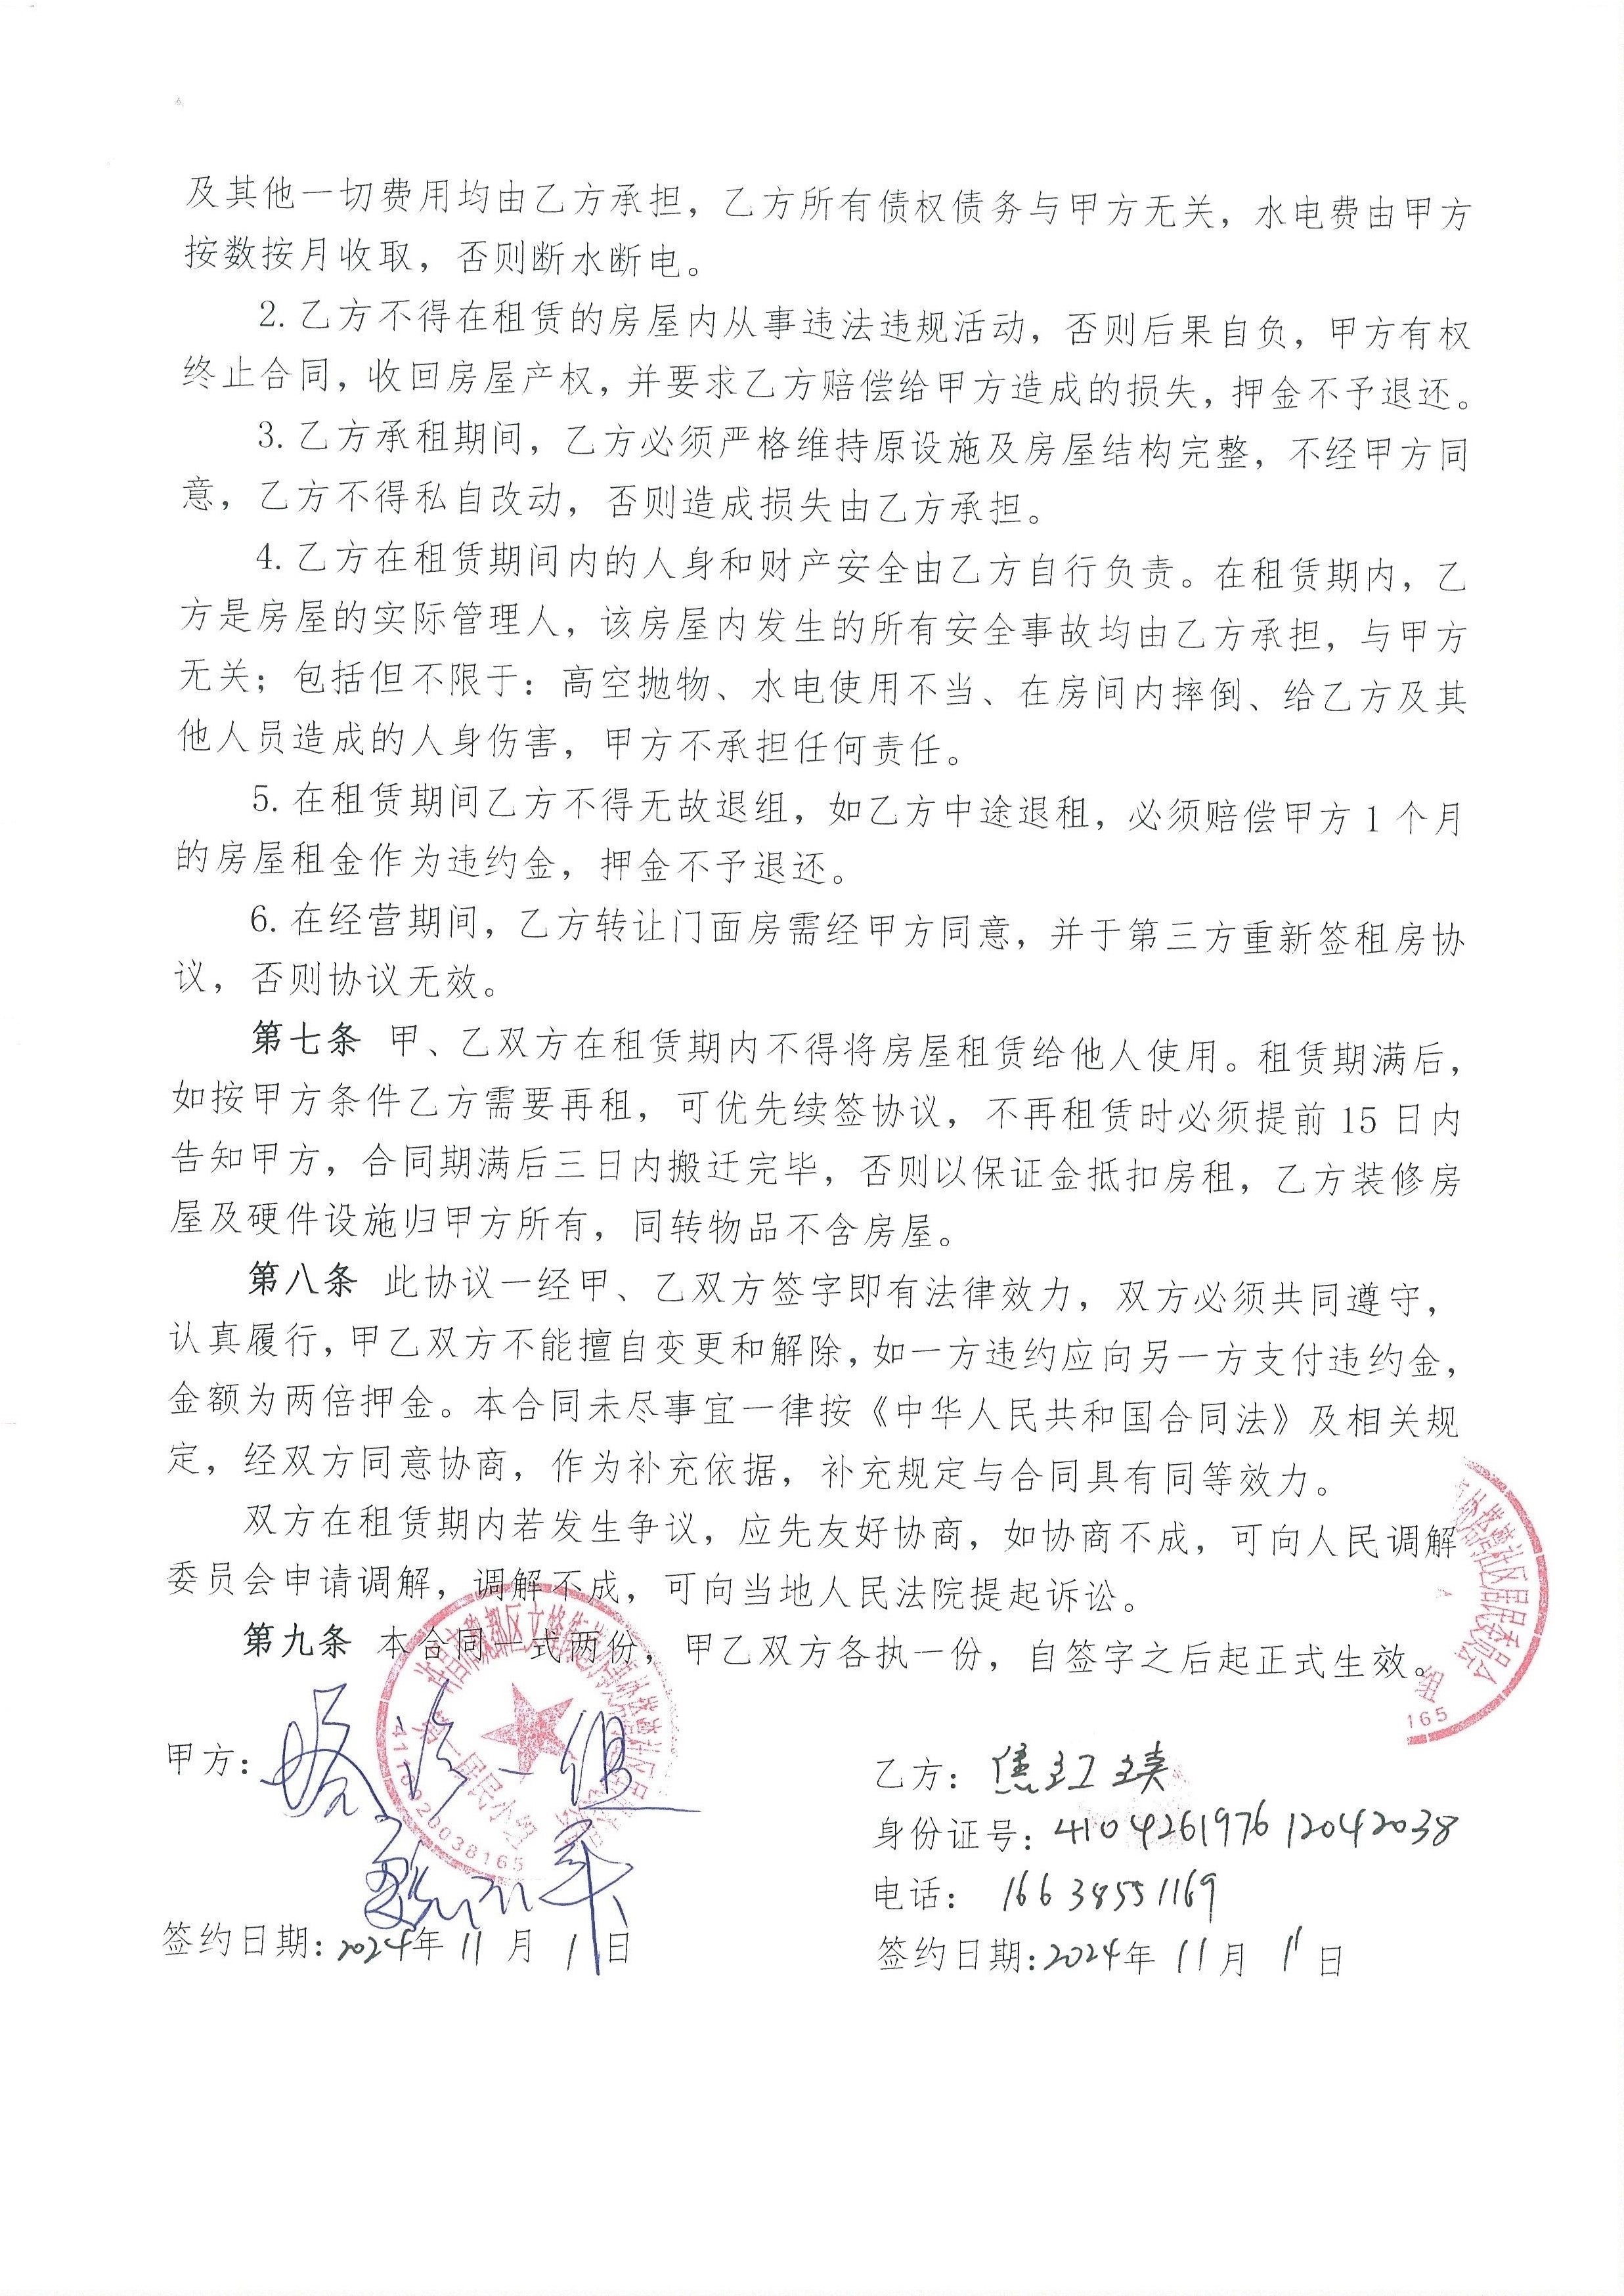 及其他一切费用均由乙方承担，乙方所有债权债务与甲方无关，水电费由甲方
按数按月收取，否则断水断电。
2.乙方不得在租赁的房屋内从事违法违规活动，否则后果自负，甲方有权
终止合同，收回房屋产权，并要求乙方赔偿给甲方造成的损失，押金不予退还。
3.乙方承租期间，乙方必须严格维持原设施及房屋结构完整，不经甲方同
意，乙方不得私自改动，否则造成损失由乙方承担。
4.乙方在租赁期间内的人身和财产安全由乙方自行负责。在租赁期内，乙
方是房屋的实际管理人，该房屋内发生的所有安全事故均由乙方承担，与甲方
无关；包括但不限于：高空抛物、水电使用不当、在房间内摔倒、给乙方及其
他人员造成的人身伤害，甲方不承担任何责任。
5.在租赁期间乙方不得无故退组，如乙方中途退租，必须赔偿甲方1个月
的房屋租金作为违约金，押金不予退还。
6.在经营期间，乙方转让门面房需经甲方同意，并于第三方重新签租房协
议，否则协议无效。
第七条 甲、乙双方在租赁期内不得将房屋租赁给他人使用。租赁期满后，
如按甲方条件乙方需要再租，可优先续签协议，不再租赁时必须提前15日内
告知甲方，合同期满后三日内搬迁完毕，否则以保证金抵扣房租，乙方装修房
屋及硬件设施归甲方所有，同转物品不含房屋。
第八条 此协议一经甲、乙双方签字即有法律效力，双方必须共同遵守，
认真履行，甲乙双方不能擅自变更和解除，如一方违约应向另一方支付违约金，
金额为两倍押金。本合同未尽事宜一律按《中华人民共和国合同法》及相关规
定，经双方同意协商，作为补充依据，补充规定与合同具有同等效力。
双方在租赁期内若发生争议，应先友好协商，如协商不成，可向人民调解
委员会申请调解，调解不成，可向当地人民法院提起诉讼。
第九条 本合同一式两份，甲乙双方各执一份，自签字之后起正式生效。
社区居民委员会
组
165
许昌市魏都区文
居民小组
4110020038165
甲方：
乙方：焦红瑛
身份证号：410426197612042038
电话：16638551169
签约日期：2024年11月1日
签约日期：2024年11月1日